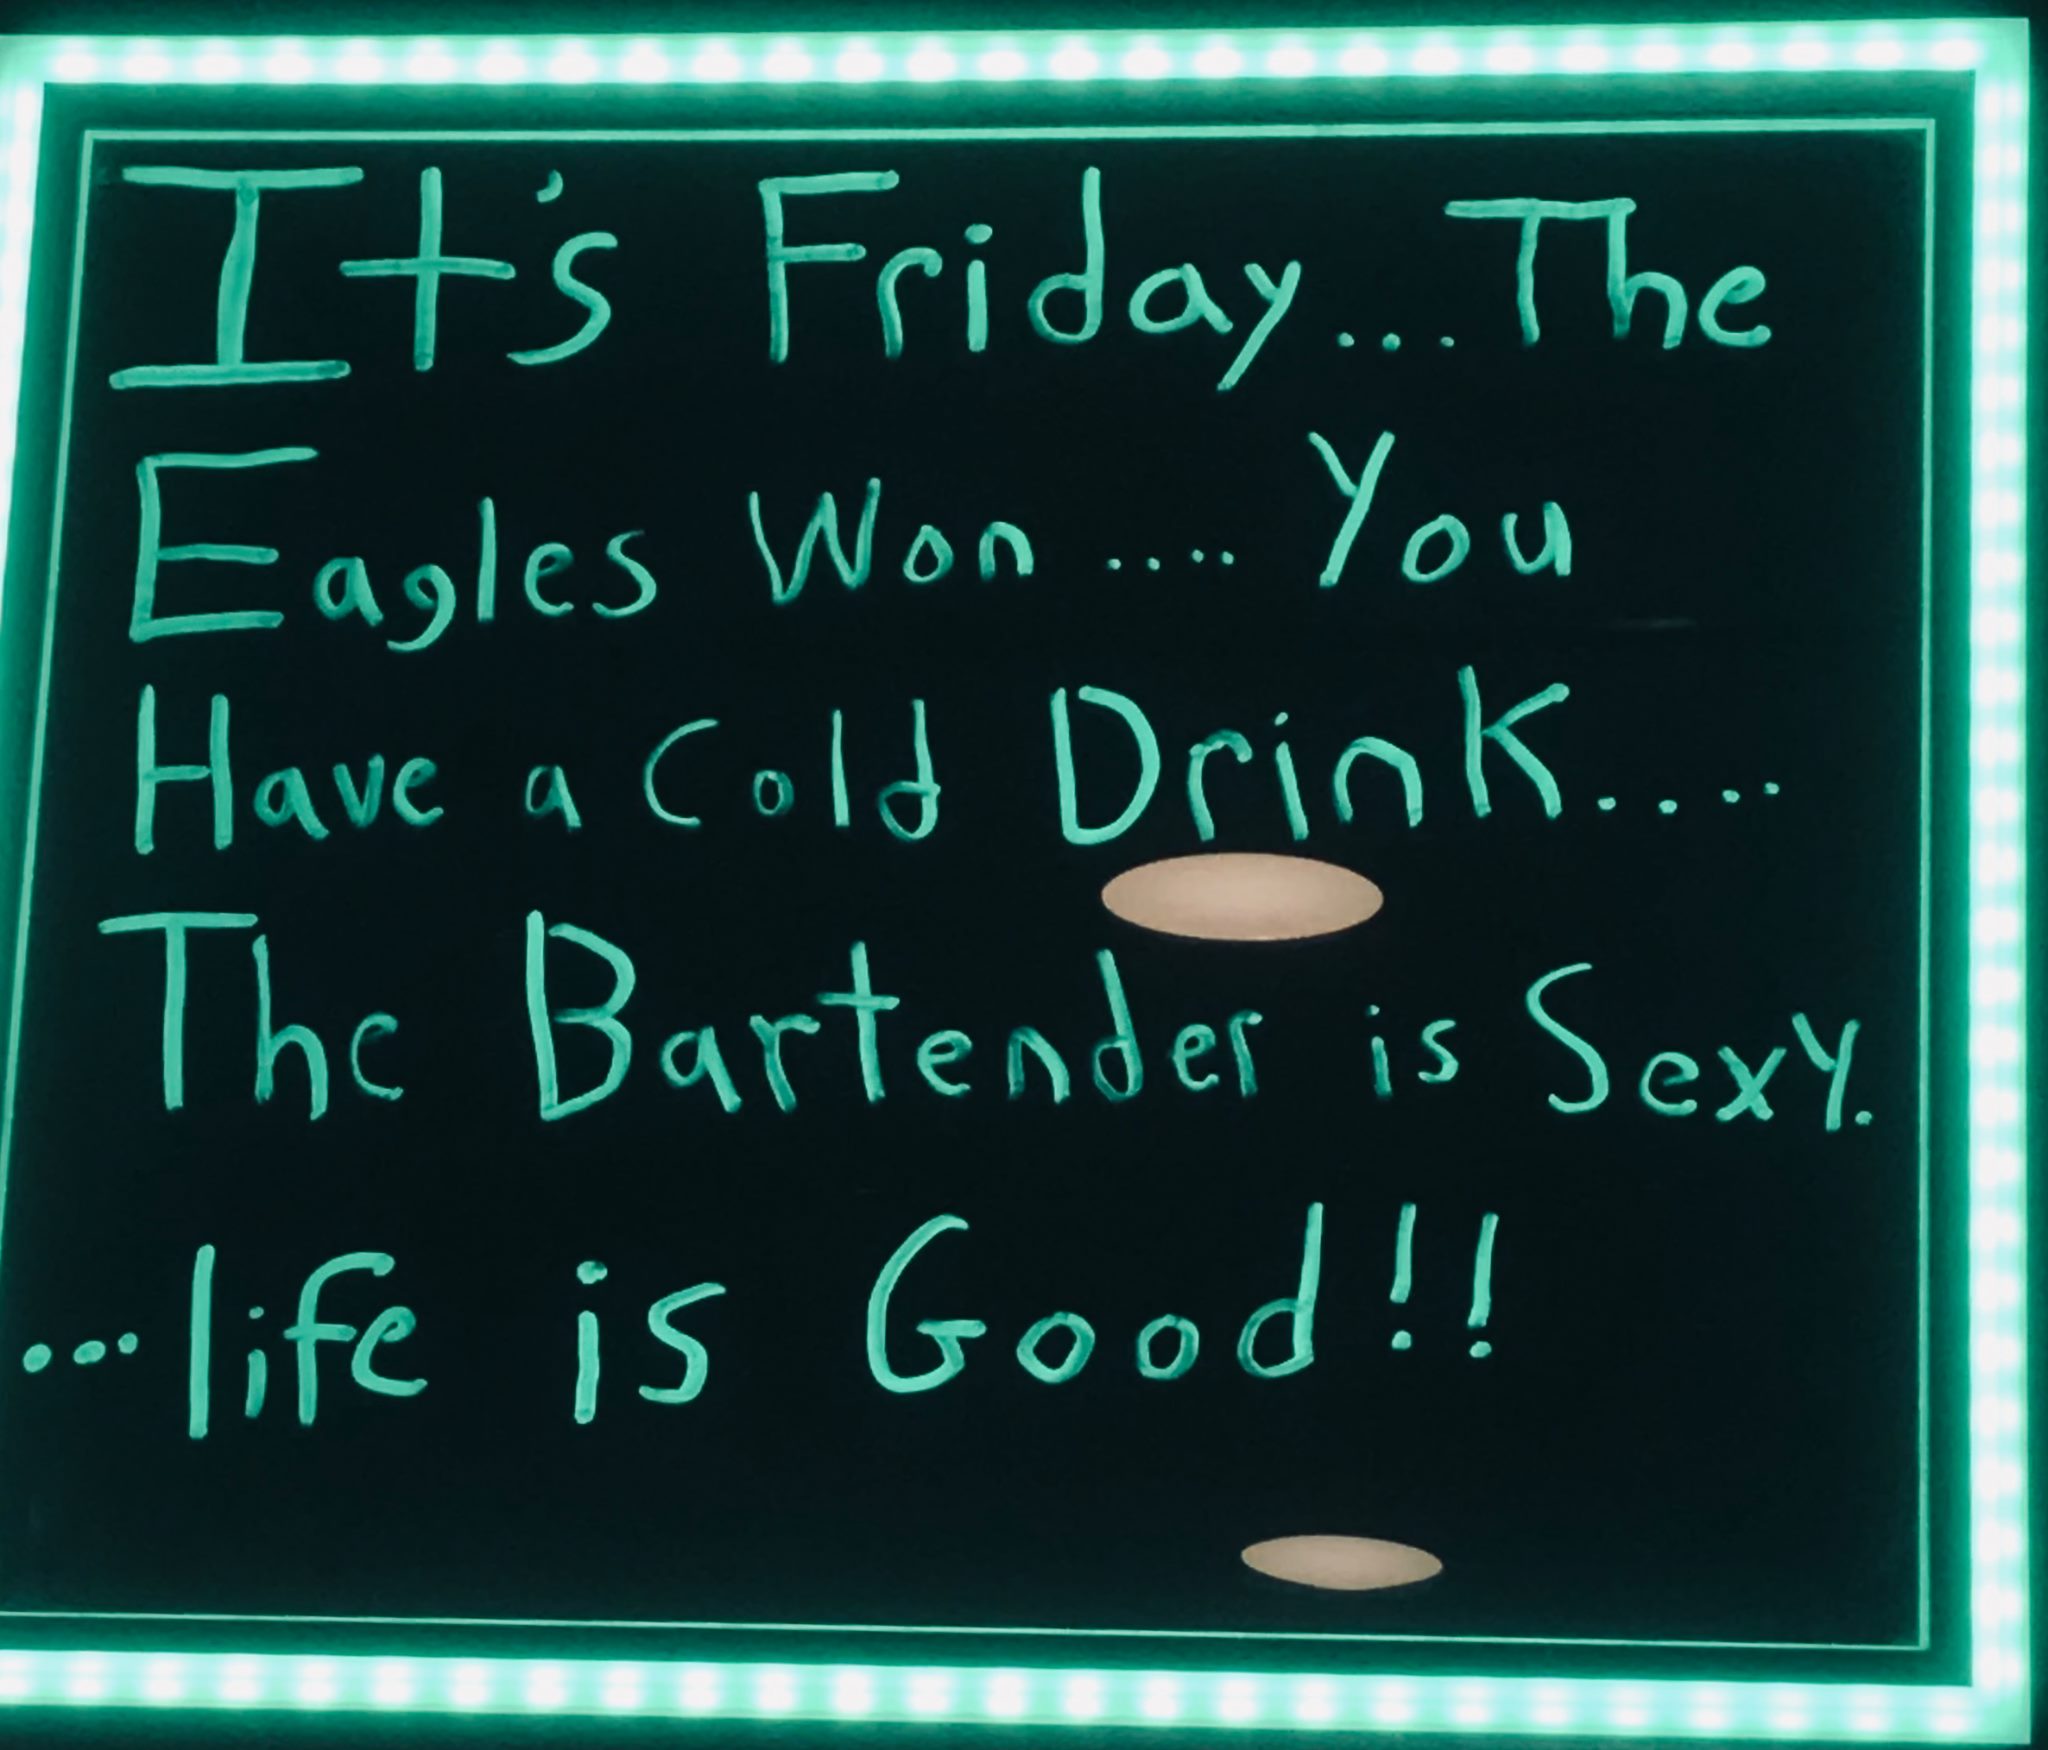 It's Friday... The
Eagles Won .... You
Have a Cold Drink....
The Bartender is Sexy.
...life is Good!!